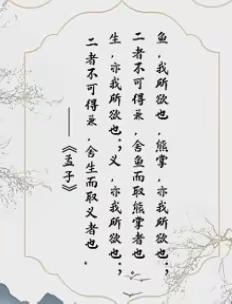 鱼，我所欲也，熊掌，亦我所欲也；
二者不可得兼，舍鱼而取熊掌者也
生，亦我所欲也；义，亦我所欲也；
二者不可得兼，舍生而取义者也。
——《孟子》